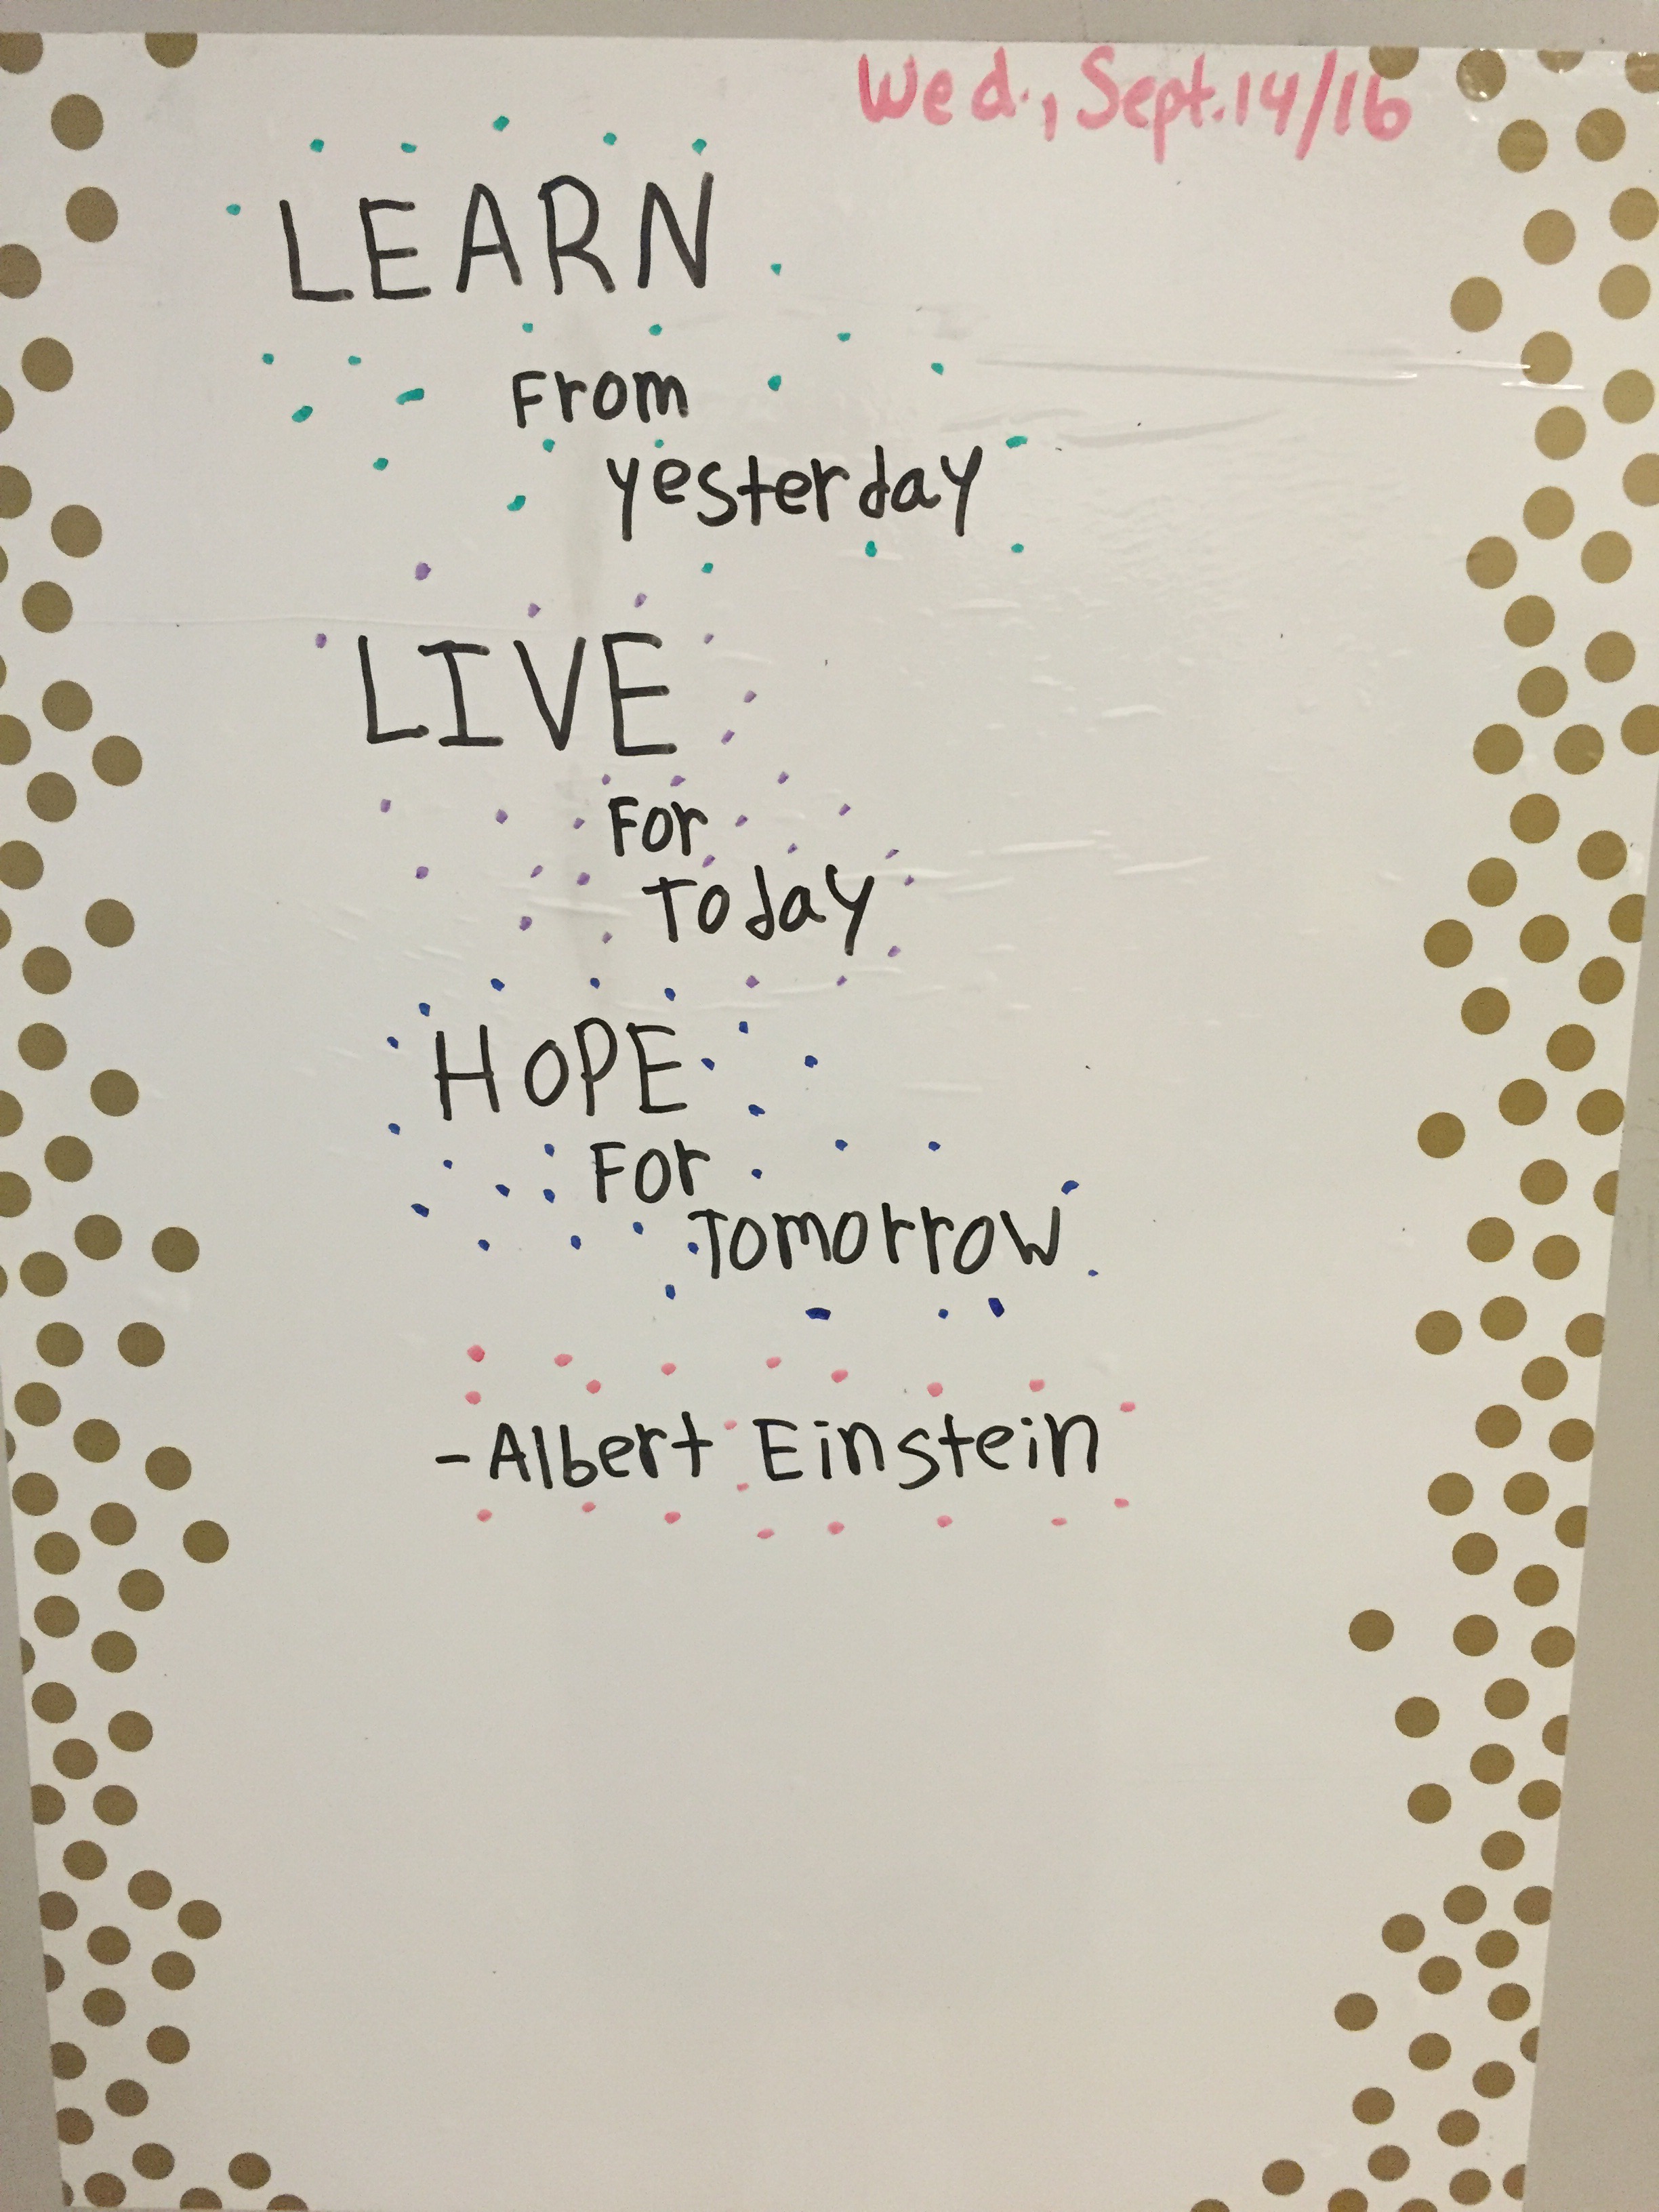 Wed., Sept. 14/16
LEARN
From
yesterday
LIVE
For
Today
HOPE
For
Tomorrow
- Albert Einstein